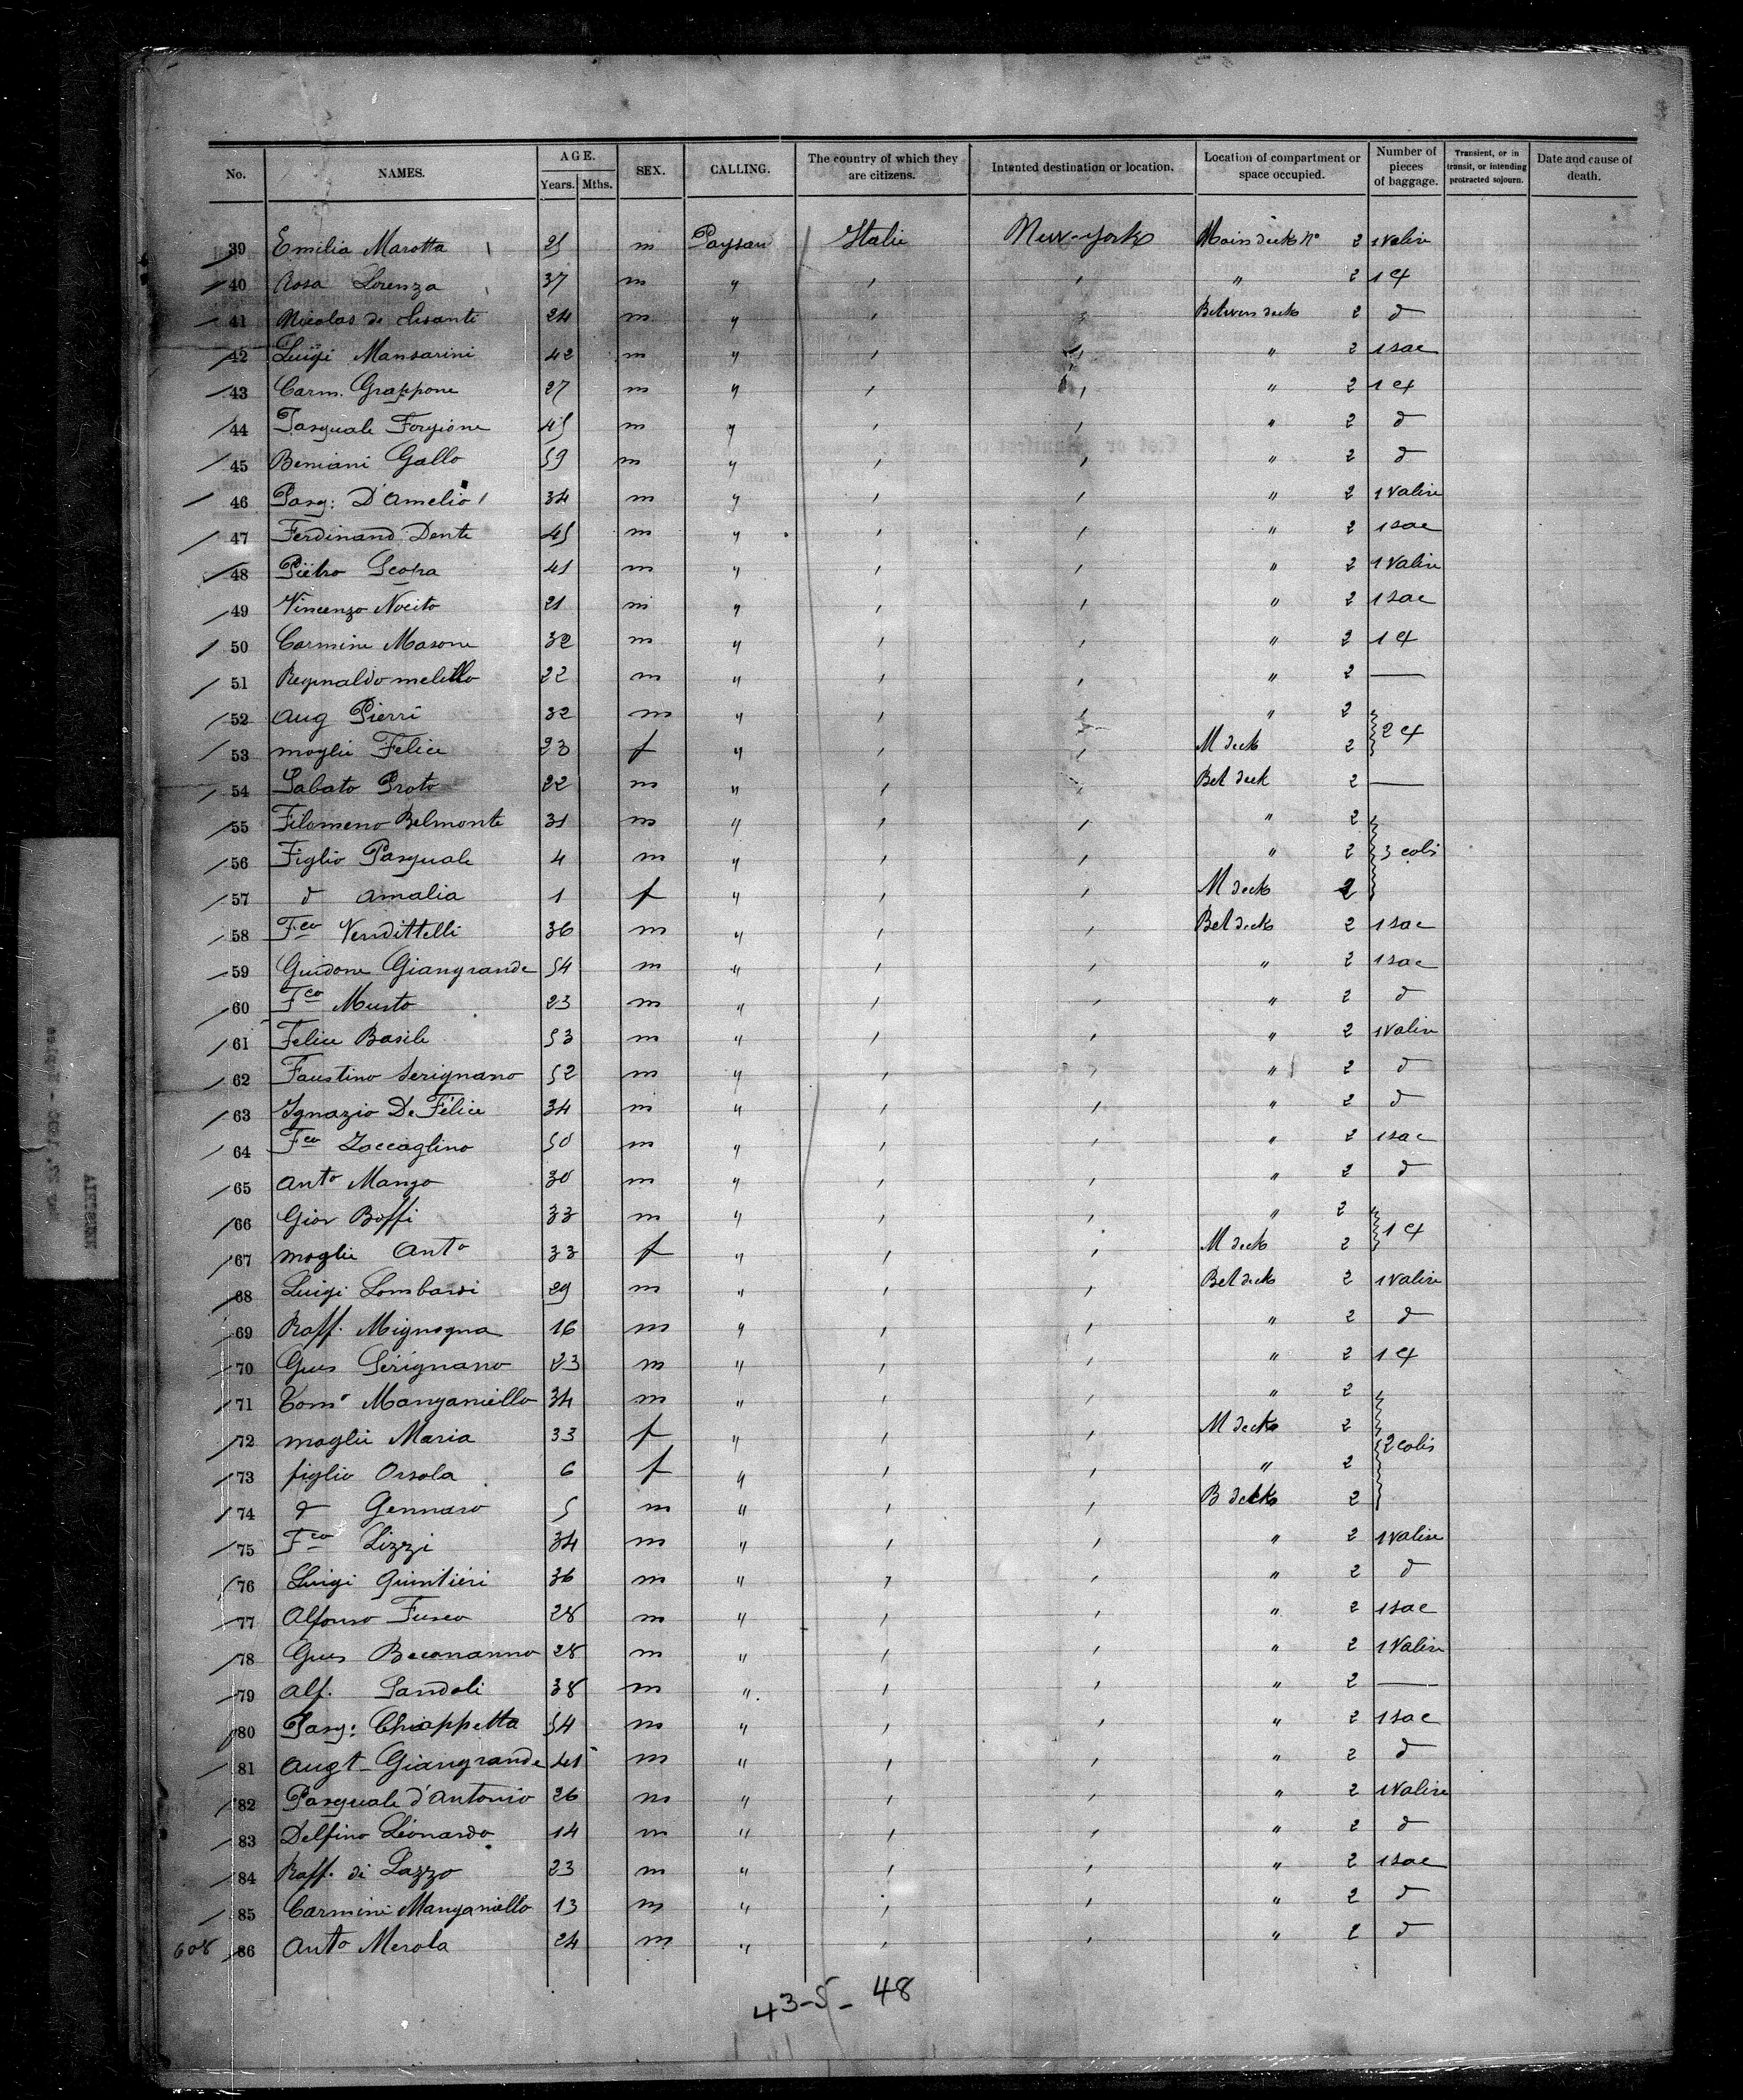 No. NAMES. AGE. Years. Mths. SEX. CALLING. The country of which they are citizens. Intented destination or location. Location of compartment or space occupied. Number of pieces of baggage. Transient, or in transit, or intending protracted sojourn. Date and cause of death.
39 Emilia Marotta 25 m Paysan Italie New-York Main deck No 2 1 valise
40 Rosa Lorenza 37 m " " " " 2 1 cx
41 Nicolas de 24 m " " " Between deck 2 d
42 Luigi Mansarini 42 m " " " " 2 1 sac
43 Carm. Grappone 27 m " " " " 2 1 cx
44 Pasquale Forgione 45 m " " " " 2 d
45 Beniani Gallo 59 m " " " " 2 d
46 Pasq: D'Amelio 34 m " " " " 2 1 valise
47 Ferdinand Dente 45 m " " " " 2 1 sac
48 Piëtro Scopa 41 m " " " " 2 1 valise
49 Vincenzo Nocito 21 m " " " " 2 1 sac
50 Carmine Masone 32 m " " " " 2 1 cx
51 Reginaldo melillo 22 m " " " " 2 —
52 Aug Pierri 32 m " " " " 2
53 moglie Felice 23 f " " " M deck 2 2 cx
54 Sabato Proto 22 m " " " Bet deck 2 —
55 Filomeno Belmonte 31 m " " " " 2
56 Figlio Pasquale 4 m " " " " 2 3 colis
57 d Amalia 1 f " " " M deck 2
58 Fco Vendittelli 36 m " " " Bet deck 2 1 sac
59 Guidone Giangrande 54 m " " " " 2 1 sac
60 Fco Musto 23 m " " " " 2 d
61 Felice Basile 53 m " " " " 2 1 valise
62 Faustino Serignano 52 m " " " " 2 d
63 Ignazio De Félice 34 m " " " " 2 d
64 Fco Zoccaglino 50 m " " " " 2 1 sac
65 Anto Manzo 30 m " " " " 2 d
66 Giov Boffi 33 m " " " " 2
67 moglie Anta 33 f " " " M deck 2 1 cx
68 Luigi Lombardi 29 m " " " Bet deck 2 1 valise
69 Raff. Mignogna 16 m " " " " 2 d
70 Gius Sérignano 23 m " " " " 2 1 cx
71 Tomo Manganiello 34 m " " " " 2
72 moglie Maria 33 f " " " M deck 2 2 colis
73 figlio Orsola 6 f " " " " 2
74 d Gennaro 5 m " " " B deck 2
75 Fco Lizzi 34 m " " " " 2 1 valise
76 Luigi Quintiéri 36 m " " " " 2 d
77 Alfonso Fusco 28 m " " " " 2 1 sac
78 Gius Beconanno 28 m " " " " 2 1 valise
79 Alf. Sandoli 38 m " " " " 2 —
80 Pasq: Chiappetta 54 m " " " " 2 1 sac
81 Augt Giangrande 41 m " " " " 2 d
82 Pasquale d'Antonio 26 m " " " " 2 1 valise
83 Delfino Léonardo 14 m " " " " 2 d
84 Raff. di Lazzo 23 m " " " " 2 1 sac
85 Carmine Manganiello 13 m " " " " 2 d
608 86 Anto Merola 24 m " " " " 2 d
43-5- 48